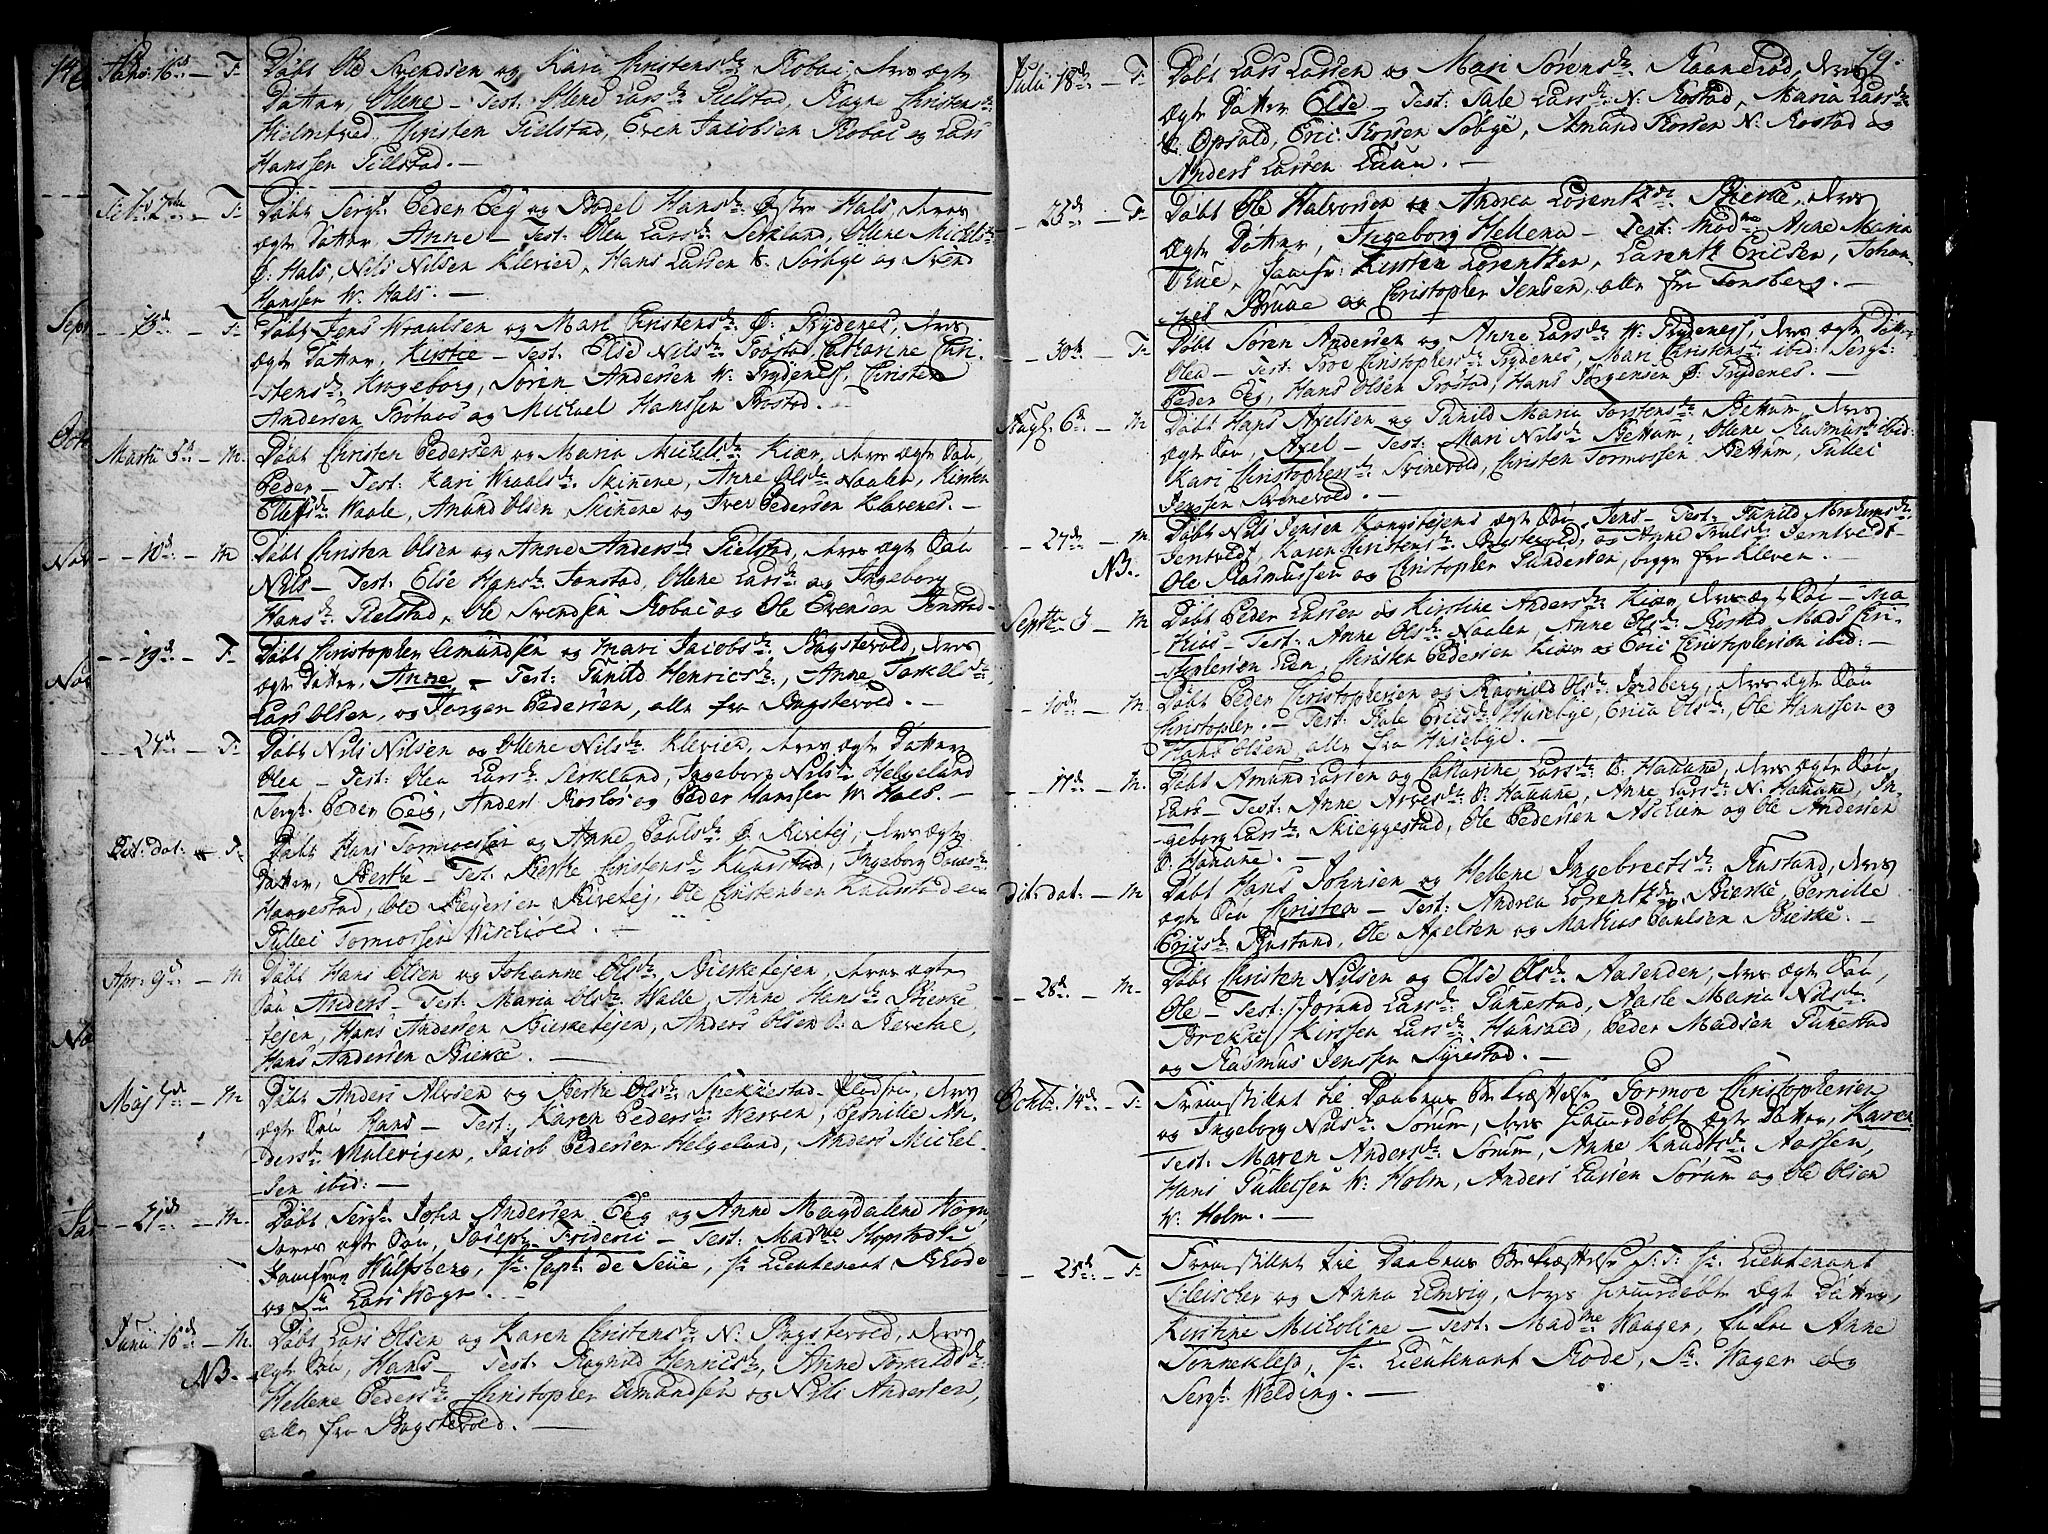 Janu: 16de – F: Døbt Ole Svendsen og Kari Christensdr. Robai, deres ægte
Datter, Ollene – Test: Ollene Larsdr. Tielstad, Ragne Christensdr.
Christen Tielstad, Even Jacobsen Robai og Lars
Hanssen Tielstad. –
Febr: 2de – F: Døbt Sergt. Peder Eeg og Bodel Hansdr. Ø: Hals, deres
ægte Datter, Anne – Test: Olea Larsdr. Serkland, Ollene Michelsdr.
Ø: Hals, Nils Nilsen Klevien, Hans Larsen Sørbye og Svend
Hanssen W: Hals. –
– 13d – F: Døbt Jens Wraalsen og Mari Christensdr. Ø: Trydenes, deres
ægte Datter, Kirstie – Test: Else Nilsdr. Trostad, Catharine Chri-
stensdr. Krogeborg, Søren Andersen W: Trydeness, Christen
Andersen Frotaas og Michael Hanssen Rostad. –
Martii 5te – M. Døbt Christen Pedersen og Maria Michelsdr. Kiær, deres ægte Søn,
Peder – Test: Kari Wraalsdr. Skinene, Anne Olsdr. Naalen, Kirsten
Elefsdr. Waale, Amund Olsen Skinene og Iver Pedersen Klavenes. –
– 10de – M Døbt Christen Olsen og Anne Andersdr. Tielstad, deres ægte Søn
Nils – Test: Else Hansdr. Jonstad, Ollene Larsdr. og Ingeborg
Hansdr. Tielstad, Ole Svendsen Robai og Ole Evensen Jonstad –
– 19de – F. Døbt Christopher Amundsen og Mari Jacobsdr. Bogstevold, deres
ægte Datter, Anne – Test: Gunild Henricsdr., Anne Torkelsdr.
Lars Olsen, og Jørgen Pedersen, alle fra Bogstevold. –
– 24de – F: Døbt Nils Nilsen og Ollene Nilsdr. Klevien, deres ægte Datter
Olea – Test: Olea Larsdr. Serkland, Ingeborg Nilsdr. Helgeland
Sergt. Peder Eeg, Anders og Peder Hanssen W: Hals. –
Dit: dat: – F: Døbt Hans Tormoesen og Anne Poulsdr. Ø: Revetej, deres ægte
Datter, Berthe – Test: Berthe Christensdr. Knarstad, Ingeborg Paulsdr.
Haugestad, Ole Revetej, Ole Christensen Knarstad og
Tullei Tormossen –
Apr: 9de – M Døbt Hans Olsen og Johanne Olsdr. Bierketejen, deres ægte
Søn Anders – Test: Maria Olsdr. Walle, Anne Hansdr. Bierke
tejen, Hans Andersen Bierketejen, Anders Olsen Ø: Revetal,
Hans Andersen Bierke. –
Maj 7de – M Døbt Anders Alvsen og Berthe Olsdr. Spekkestad-Pladsen, deres
ægte Søn Hans – Test: Karen Pedersdr. Werven, Pernille An-
dersdr. Mulevigen, Jacob Pedersen Helgeland, Anders Michel-
sen ibid: –
– 21de – M. Døbt Sergt. John Andersen Eeg og Anne Magdalena Wogn,
deres ægte Søn, Joseph Frideric – Test: Madme Kopstadt,
Jomfrue Wulfsberg, Hr. Capt: de Seue, Hr. Lieutenant Rode
og Sr. Lars Wogn. –
Junii 16de – M. Døbt Lars Olsen og Karen Christensdr. N: Bogstevold, deres
NB. ægte Søn, Hans – Test: Ragnild Henricsdr., Anne
Hellene Pedersdr. Christopher Amundsen og Nils Andersen,
alle fra Bogstevold. –
79.
Julii 18de – F: Døbt Lars Larsen og Mari Sørensdr. deres
ægte Datter Else – Test: Sale Larsdr. N: Rostad, Maria Larsdr.
Opsald, Eric Søbye, Amund N: Rostad og
Anders Larsen Laun. –
– 23de – F: Døbt Ole Halvorsen og Andrea Lorentzdr. Bierke, deres
ægte Datter, Ingeborg Hellena – Test: Madme Anne Maria
True, Jomfr: Kirsten Lorentzen, Lorentz Ericsen, Johan-
nes Bruun og Christopher Jensen, alle fra Tonsberg. –
– 30te – F: Døbt Søren Andersen og Anne Larsdr. W: Trydeness, deres ægte Datter
Olea – Test: Christophersdr. Trydenes, Mari Christensdr. ibid: Sergt.
Peder Eeg, Hans Olsen Trostad, Hans Jørgensen Ø: Trydenes. –
Aug: 6te – M Døbt Hans Axelsen og Gunild Maria Torstensdr. Bettum, deres
ægte Søn, Axel – Test: Mari Nilsdr. Bettum, Ollene Rasmusdr. ibid:
Kari Christophersdr. Svinevold, Christen Tormossen Bettum, Tullei
Jenssen Svinevold. –
– 27de – M. Døbt Nils Jensen Kongstejens ægte Søn, Jens – Test: Gunild Abrahamsdr.
NB. Jerntvedt, Karen Christensdr. Bogstevold, og Anne Trulsdr. Jerntvedt –
Ole Rasmussen og Christopher Gundersen, begge fra Kleven. –
Septbr: 3 – M Døbt Peder Larsen og Kirstine Andersdr. Kiær, deres ægte Søn – Ma
thias – Test: Anne Olsdr. Naalen, Anne Olsdr. Mads Chri-
stophersen Lien, Christen Pedersen Kiær og Eric Christophersen ibid: –
– 10de – M. Døbt Peder Christophersen og Ragnild Olsdr. Jordberg, deres ægte Søn
Christopher. – Test: Sale Ericsdr. Husebye, Erica Olsdr., Ole Hanssen og
Hans Olsen, alle fra Husebye. –
– 17de – M. Døbt Amund Larsen og Catharine Larsdr. Ø: Hauane, deres ægte Søn,
Lars – Test: Anne Alvesdr. Ø: Hauane, Anne Larsdr. N: Hauane, In-
geborg Larsdr. Skieggestad, Ole Pedersen Askum og Ole Andersen
Ø: Hauane. –
Dit: dat: – M Døbt Hans Johnsen og Hellene Ingebretsdr. Rustand, deres
ægte Søn Christen – Test: Andrea Lorentzdr. Bierke, Pernille
Ericsdr. Rustand, Ole Axelsen og Mathias Paulsen Bierke. –
– 26de – M. Døbt Christen Nilsen og Else Olsdr. Aasenden, deres ægte Søn,
Ole – Test: Jorand Larsdr. Tanestad, Aasle Maria Nilsdr.
Brekke, Kirsten Larsdr. Hansald, Peder Madsen Tanestad
og Rasmus Jenssen Syrestad. –
Octbr: 14de – F: Fremstillet til Daabens Bekræftelse Tormoe Christophersen
og Ingeborg Nilsdr. Sørum, deres hiemmedøbt ægt Datter, Karen
Test: Maren Andersdr. Sørum, Anne Knudtsdr. Aassen,
Hans Tullefsen W: Holm, Anders Larsen Sørum og Ole Olsen
W: Holm. –
– 25de – F: Fremstillet til Daabens Bekræftelse S: T: Hr. Lieutenant
Fleischer og Anna Lemvig, deres hiemmedøbt ægt Datter,
Kirstine Micheline – Test: Madme Haager, Enke Anne
Tønneklep, Hr. Lieutenant Rode, Sr. Wager og
Sergt. Welding. –